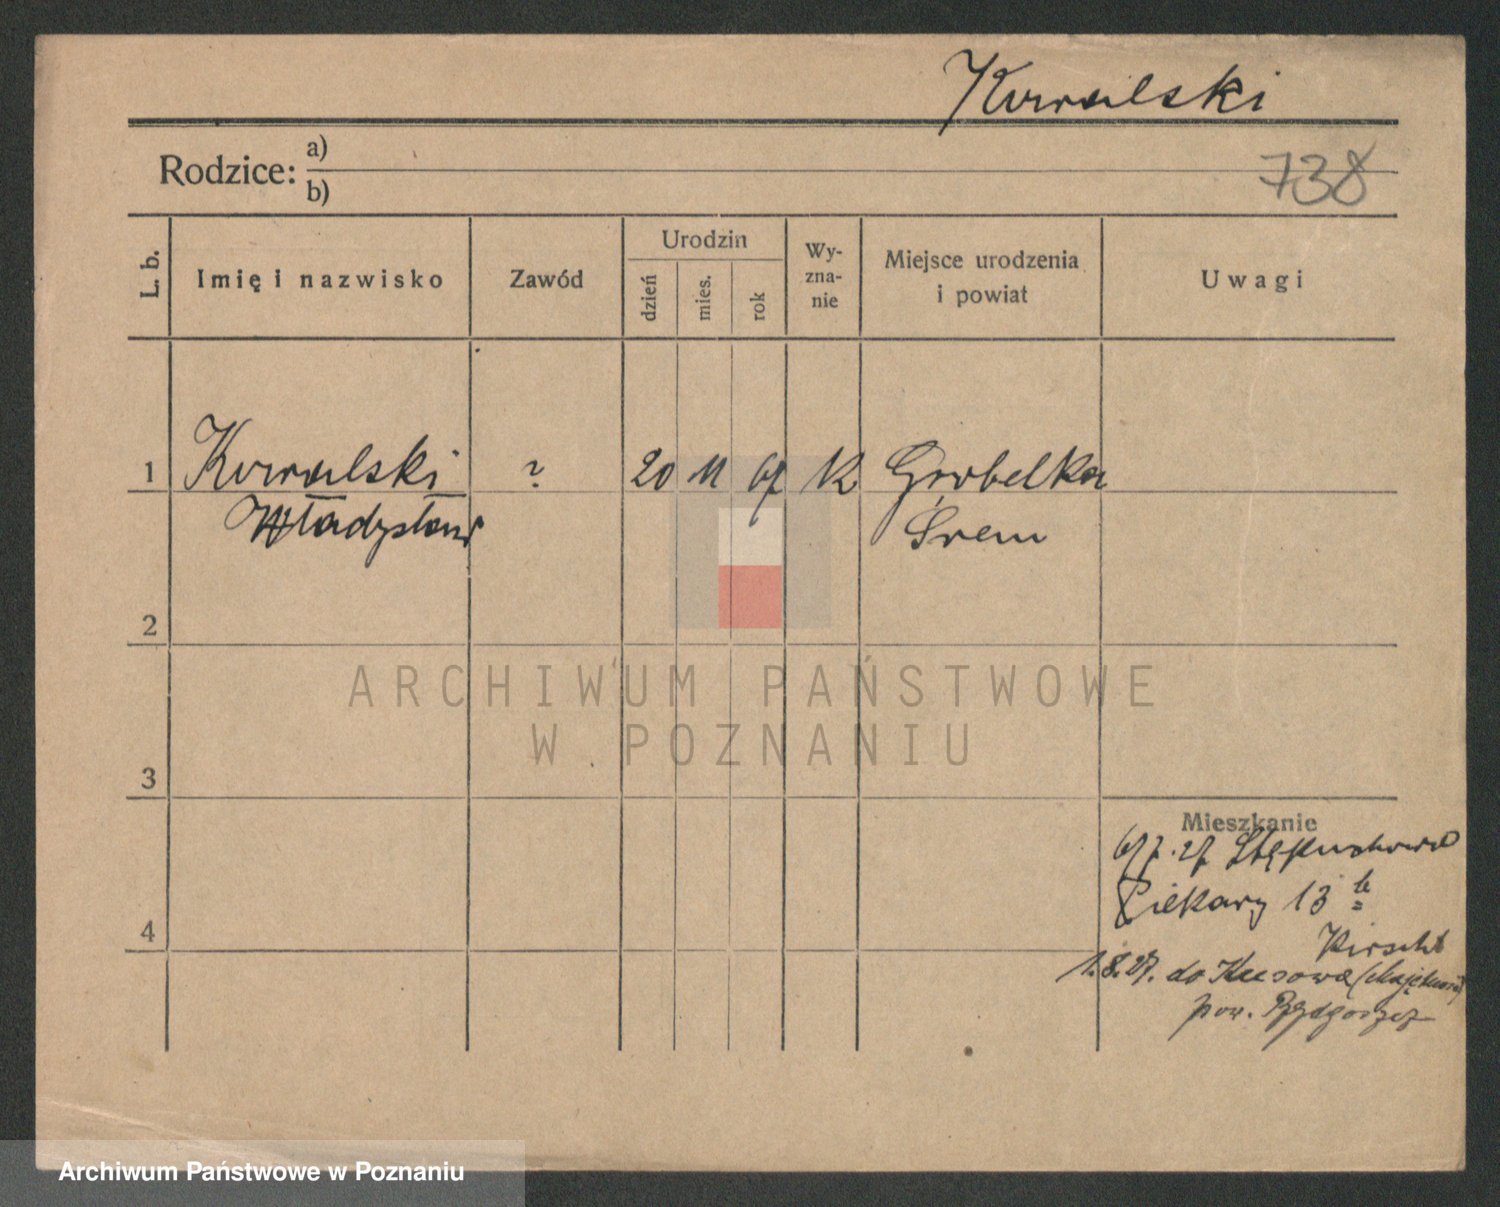 Kowalski
Rodzice: a)
b)
738
L. b.
Imię i nazwisko
Zawód
Urodzin
dzień
mies.
rok
Wy-
zna-
nie
Miejsce urodzenia
i powiat
Uwagi
1 Kowalski ? 20 11 07 K Grobelka
Władysław Śrem
2
ARCHIWUM PAŃSTWOWE
W POZNANIU
3
Mieszkanie
Piekary 13
4
Kirscht
1.8.27. do
pow. Bydgoszcz
Archiwum Państwowe w Poznaniu